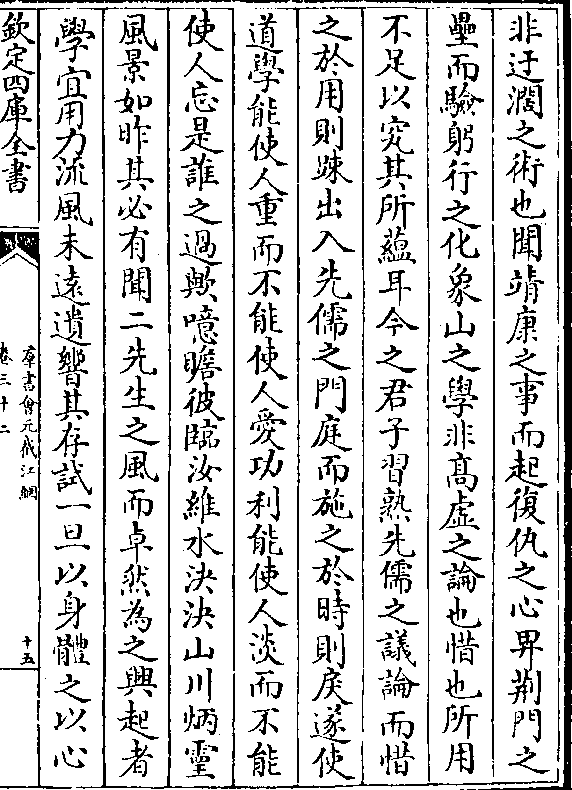 非迂濶之術也聞靖康之事而起復仇之心畀荆門之
壘而驗躬行之化象山之學非髙虚之論也惜也所用
不足以究其所蘊耳今之君子習熟先儒之議論而惜
之於用則踈出入先儒之門庭而施之於時則戾遂使
道學能使人重而不能使人愛功利能使人淡而不能
使人忘是誰之過歟噫瞻彼臨汝維水泱泱山川炳靈
風景如昨其必有聞二先生之風而卓然為之興起者
學宜用力流風未逺遺響其存試一旦以身體之以心
欽定四庫全書
羣書會元截江網
卷三十二
十五